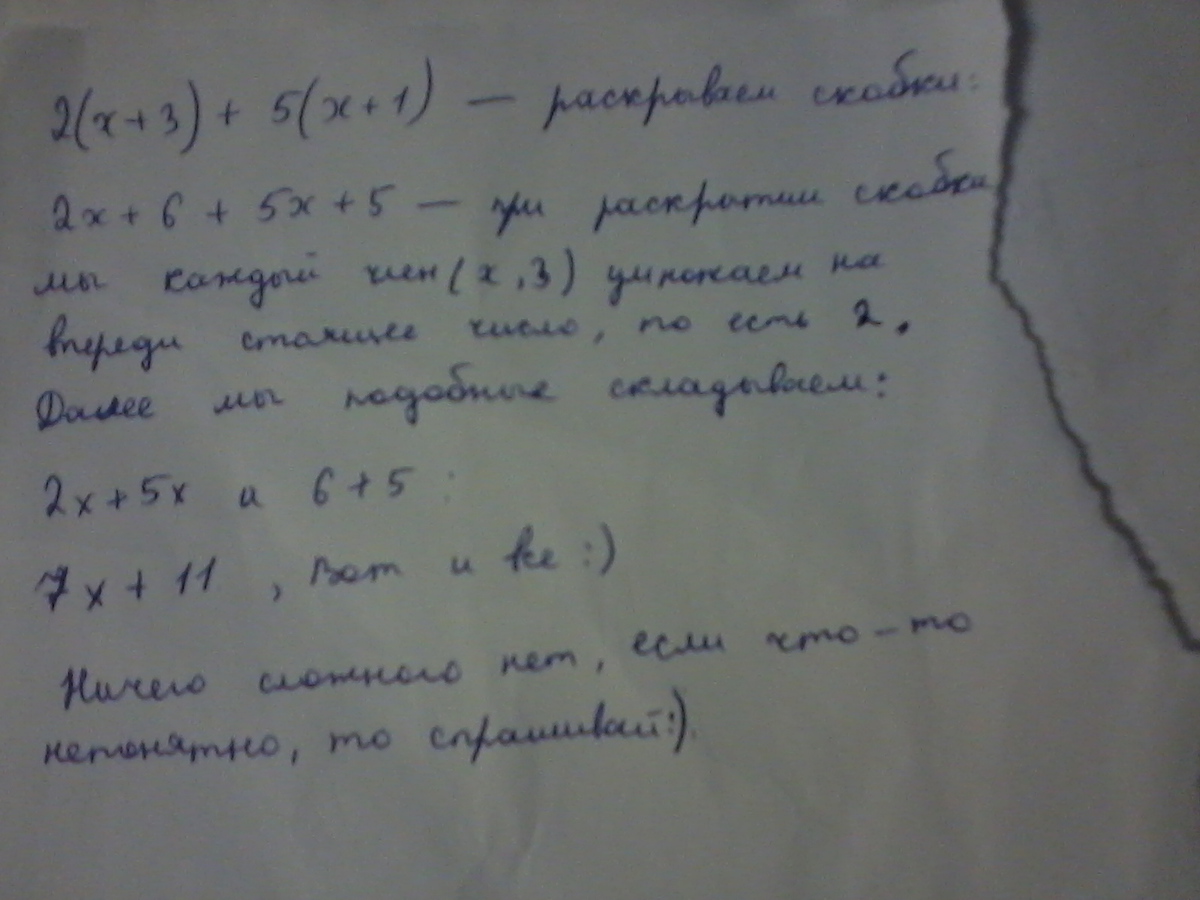 2(x+3) + 5(x+1) — раскрываем скобки:
2x + 6 + 5x + 5 — при раскрытии скобки
мы каждый член (x, 3) умножаем на
впереди стоящее число, то есть 2.
Далее мы подобные складываем:
2x + 5x и 6 + 5 :
7x + 11 , Вот и все :)
Ничего сложного нет, если что-то
непонятно, то спрашивай:).